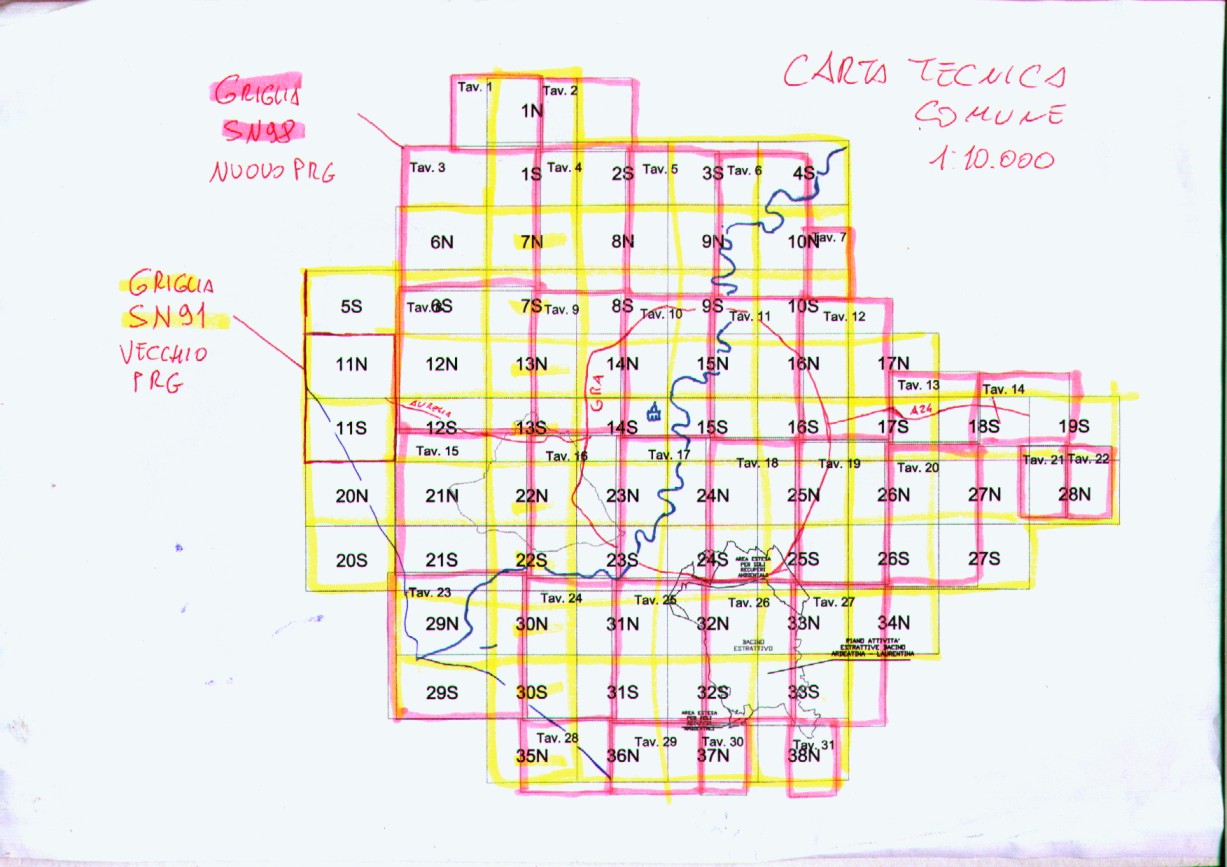 GRIGLIA
SN98
NUOVO PRG
CARTA TECNICA
COMUNE
1:10.000
GRIGLIA
SN91
VECCHIO
PRG
Tav. 1
Tav. 2
1N
Tav. 3
1S
Tav. 4
2S
Tav. 5
3S
Tav. 6
4S
6N
7N
8N
9N
10N
Tav. 7
5S
Tav. 8
6S
7S
Tav. 9
8S
Tav. 10
9S
Tav. 11
10S
Tav. 12
11N
12N
13N
14N
15N
16N
17N
GRA
Tav. 13
Tav. 14
AURELIA
A24
11S
12S
13S
14S
15S
16S
17S
18S
19S
Tav. 15
Tav. 16
Tav. 17
Tav. 18
Tav. 19
Tav. 20
Tav. 21
Tav. 22
20N
21N
22N
23N
24N
25N
26N
27N
28N
20S
21S
22S
23S
24S
25S
26S
27S
AREA ESTESA
PER SOLI
RECUPERI
AMBIENTALI
Tav. 23
Tav. 24
Tav. 25
Tav. 26
Tav. 27
29N
30N
31N
32N
33N
34N
BACINO
ESTRATTIVO
PIANO ATTIVITA'
ESTRATTIVE BACINO
ARDEATINA - LAURENTINA
29S
30S
31S
32S
33S
AREA ESTESA
PER SOLI
RECUPERI
AMBIENTALI
Tav. 28
Tav. 29
Tav. 30
Tav. 31
35N
36N
37N
38N